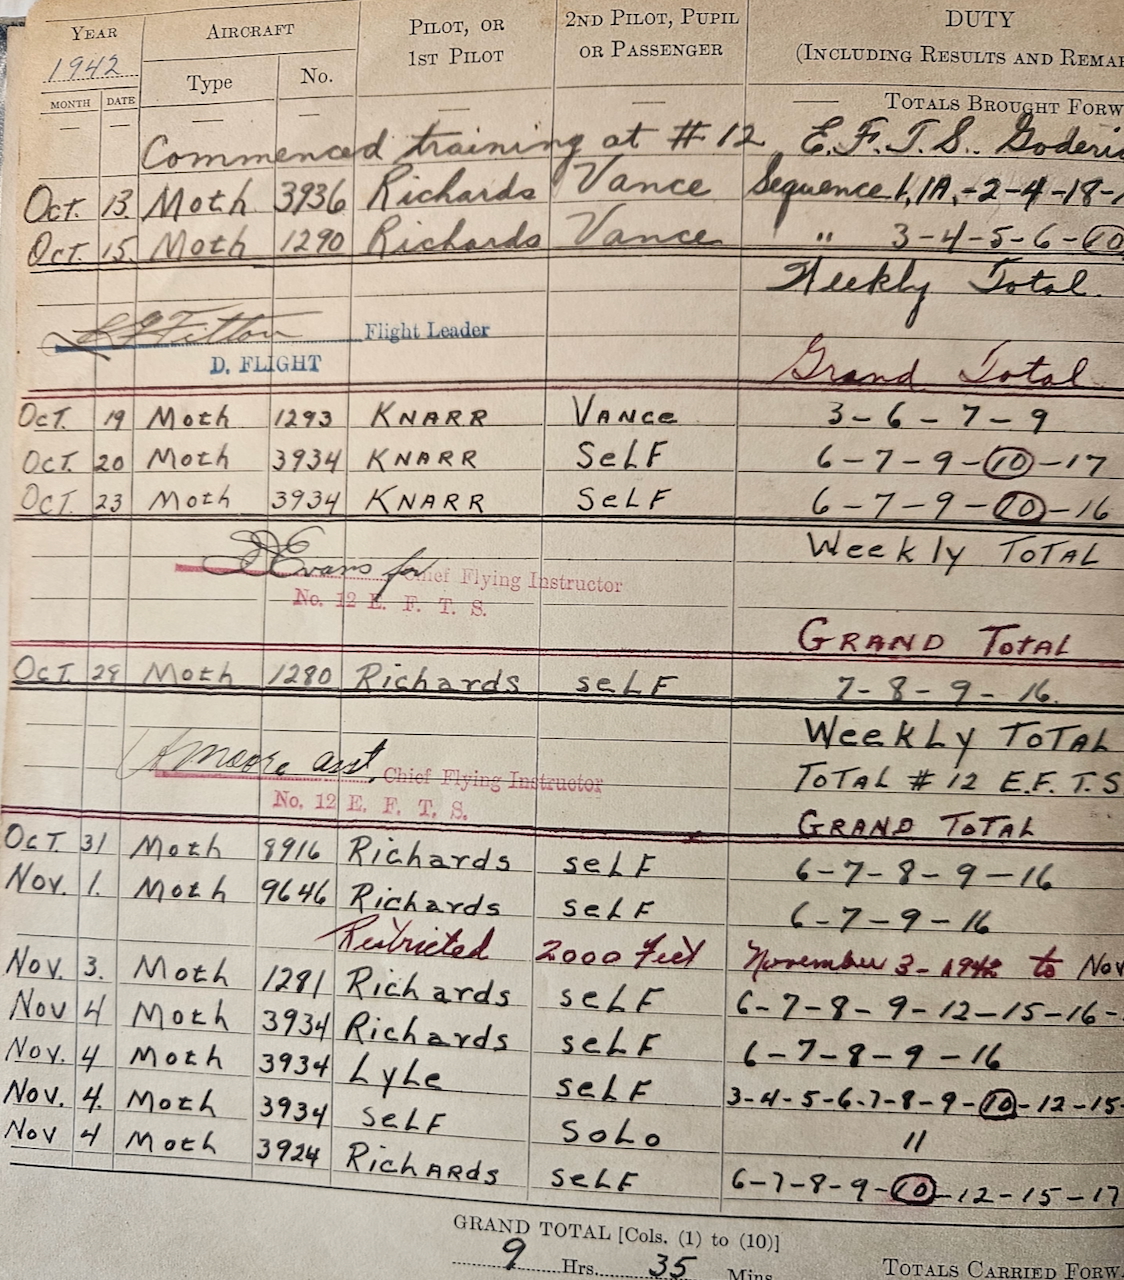 YEAR AIRCRAFT PILOT, OR 2ND PILOT, PUPIL DUTY
1942 1ST PILOT OR PASSENGER (INCLUDING RESULTS AND REMAR
Type No.
MONTH DATE
— — — — TOTALS BROUGHT FORW
Commenced training at # 12 E.F.T.S. Goderic
Oct. 13. Moth 3936 Richards Vance Sequence 1, 1A,-2-4-18-
Oct. 15. Moth 1290 Richards Vance " 3-4-5-6-10
Weekly Total.
Fitton Flight Leader
D. FLIGHT
Grand Total
Oct. 19 Moth 1293 KNARR VANCE 3-6-7-9
Oct. 20 Moth 3934 KNARR SELF 6-7-9-10-17
Oct. 23 Moth 3934 KNARR SELF 6-7-9-10-16
Weekly TOTAL
Evans for Chief Flying Instructor
No. 12 E. F. T. S.
GRAND TOTAL
Oct. Moth 1280 Richards SELF 7-8-9-16.
Weekly TOTAL
Moore asst. Chief Flying Instructor
TOTAL # 12 E.F.T.S
No. 12 E. F. T. S.
GRAND TOTAL
Oct. 31 Moth 8916 Richards SELF 6-7-8-9-16
Nov. 1. Moth 9646 Richards SELF 6-7-9-16
Restricted 2000 feet November 3-1942 to Nov
Nov. 3. Moth 1281 Richards SELF 6-7-8-9-12-15-16-
Nov 4 Moth 3934 Richards SELF 6-7-8-9-16
Nov. 4 Moth 3934 Lyle SELF 3-4-5-6-7-8-9-10-12-15-
Nov. 4. Moth 3934 SELF SOLO 11
Nov 4 Moth 3924 RICHARDS SELF 6-7-8-9-10-12-15-17
GRAND TOTAL [Cols. (1) to (10)]
9 Hrs. 35 Mins. TOTALS CARRIED FORW